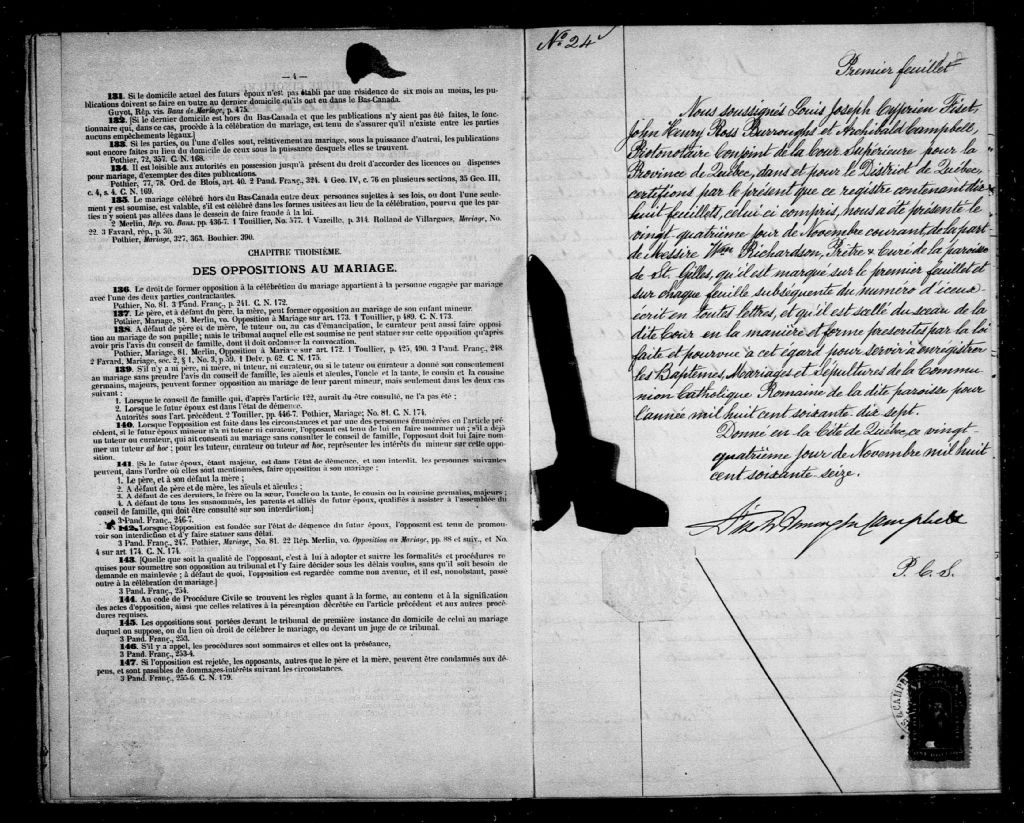 — 4 —
131. Si le domicile actuel des futurs époux n'est pas établi par une résidence de six mois au moins, les pu-
blications doivent se faire en outre au dernier domicile qu'ils ont eu dans le Bas-Canada.
Guyot, Rép. vis. Bans de Mariage, p. 475.
132. [Si le dernier domicile est hors du Bas-Canada et que les publications n'y aient pas été faites, le fonc-
tionnaire qui, dans ce cas, procède à la célébration du mariage, est tenu de s'assurer qu'il n'existe entre les parties
aucuns empêchements légaux.]
133. Si les parties, ou l'une d'elles sont, relativement au mariage, sous la puissance d'autrui, les publications
sont encore faites au lieu du domicile de ceux sous la puissance desquels elles se trouvent.
Pothier, 72, 357. C. N. 168.
134. Il est loisible aux autorités en possession jusqu'à présent du droit d'accorder des licences ou dispenses
pour mariage, d'exempter des dites publications.
Pothier, 77, 78. Ord. de Blois, art. 40. 2 Pand. Franç., 324. 4 Geo. IV, c. 76 en plusieurs sections, 35 Geo. III,
c. 4, s. 4. C. N. 169.
135. Le mariage célébré hors du Bas-Canada entre deux personnes sujettes à ses lois, ou dont l'une seule-
ment y est soumise, est valable, s'il est célébré dans les formes usitées au lieu de la célébration, pourvu que les par-
ties n'y soient pas allées dans le dessein de faire fraude à la loi.
2 Merlin, Rép. vo. Bans. pp. 436-7. 1 Touillier, No. 577. 1 Vazeille, p. 314. Rolland de Villargues, Mariage, No.
22. 3 Favard, rép., p. 50.
Pothier, Mariage, 327, 363. Bouhier. 390.
CHAPITRE TROISIÈME.
DES OPPOSITIONS AU MARIAGE.
136. Le droit de former opposition à la célébration du mariage appartient à la personne engagée par mariage
avec l'une des deux parties contractantes.
Pothier, No. 81. 3 Pand. Franç., p. 241. C. N. 172.
137. Le père, et à défaut du père, la mère, peut former opposition au mariage de son enfant mineur.
Pothier, Mariage, 81. Merlin, vo. Opposition à Mariage sur art. 173. 1 Touillier, p 489. C. N. 173.
138. A défaut de père et de mère, le tuteur ou, au cas d'émancipation, le curateur peut aussi faire opposi-
tion au mariage de son pupille; mais le tribunal auquel elle est soumise ne peut statuer sur cette opposition qu'après
avoir pris l'avis du conseil de famille, dont il doit ordonner la convocation.
Pothier, Mariage, 81. Merlin, Opposition à Mariage sur art. 172. 1 Touillier, p. 425, 490. 3 Pand. Franç., 248.
2 Favard, Mariage, sec. 2, § 1, No. 3, p. 59. 1 Delv. p. 62. C. N. 175.
139. S'il n'y a ni père, ni mère, ni tuteur, ni curateur, ou si le tuteur ou curateur a donné son consentement
au mariage sans prendre l'avis du conseil de famille, les aïeuls et aïeules, l'oncle et la tante, le cousin et la cousine
germains, majeurs, peuvent former opposition au mariage de leur parent mineur, mais seulement dans les deux cas
suivant :
1. Lorsque le conseil de famille qui, d'après l'article 122, aurait du être consulté, ne l'a pas été ;
2. Lorsque le futur époux est dans l'état de démence.
Autorités sous l'art. précédent. 2 Touillier, pp. 446-7. Pothier, Mariage; No. 81. C. N. 174.
140. Lorsque l'opposition est faite dans les circonstances et par une des personnes énumérées en l'article pré-
cédent, si le futur époux mineur n'a ni tuteur ni curateur, l'opposant est tenu de lui en faire nommer un ; s'il a déjà
un tuteur ou curateur, qui ait consenti au mariage sans consulter le conseil de famille, l'opposant doit lui faire nom-
mer un tuteur ad hoc ; pour les tuteur, curateur ou tuteur ad hoc, représenter les intérêts du mineur sur cette oppo-
sition.
141. [Si le futur époux, étant majeur, est dans l'état de démence, et non interdit, les personnes suivantes
peuvent, dans l'ordre où elles sont mentionnées, faire opposition à son mariage ;
1. Le père, et à son défaut la mère ;
2. A défaut de père et de mère, les aïeuls et aïeules ;
3. A défaut de ces derniers, le frère ou la sœur, l'oncle ou la tante, le cousin ou la cousine germains, majeurs ;
4. A défaut de tous les susnommés, les parents et alliés du futur époux, qualifiés à assister à l'assemblée du
conseil de famille, qui doit être consulté sur son interdiction.]
3 Pand. Franç., 246-7.
142. Lorsque l'opposition est fondée sur l'état de démence du futur époux, l'opposant est tenu de promou-
voir son interdiction et d'y faire statuer sans délai.
3 Pand. Franç., 247. Pothier, Mariage, No. 81. 22 Rép. Merlin, vo. Opposition au Mariage, pp. 88 et suiv., et No.
4 sur art. 174. C. N. 174.
143. [Quelle que soit la qualité de l'opposant, c'est à lui à adopter et suivre les formalités et procédures re-
quises pour soumettre son opposition au tribunal et l'y faire décider sous les délais voulus, sans qu'il soit besoin de
demande en mainlevée ; à défaut de quoi, l'opposition est regardée comme non avenue, et il est, nonobstant, passé
outre à la célébration du mariage.]
3 Pand. Franç., 254.
144. Au code de Procédure Civile se trouvent les règles quant à la forme, au contenu et à la signification
des actes d'opposition, ainsi que celles relatives à la péremption décrétée en l'article précédent et aux autres procé-
dures requises.
145. Les oppositions sont portées devant le tribunal de première instance du domicile de celui au mariage
duquel on suppose, ou du lieu où droit de célébrer le mariage, ou devant un juge de ce tribunal.
3 Pand. Franç., 253.
146. S'il y a appel, les procédures sont sommaires et elles ont la préséance,
3 Pand. Franç., 253-4.
147. Si l'opposition est rejetée, les opposants, autres que le père et la mère, peuvent être condamnés aux dé-
pens, et sont passibles de dommages-intérêts suivant les circonstances.
3 Pand. Franç., 255-6. C. N. 179.
No 24
Premier feuillet
Nous soussignés Louis Joseph Cyprien Fiset,
John Henry Ross Burroughs et Archibald Campbell,
Protonotaire Conjoint de la Cour Supérieure pour la
Province de Québec, dans et pour le District de Québec,
certifions par le présent que ce registre contenant dix
huit feuillets, celui ci compris, nous a été présenté le
vingt quatrième jour de Novembre courant de la part
de Messire Wm Richardson, Prêtre & Curé de la paroisse
de St. Gilles, qu'il est marqué sur le premier feuillet et
sur chaque feuille subséquente du numéro d'iceux
écrit en toutes lettres, et qu'il est scellé du sceau de la
dite Cour en la manière et forme prescrites par la loi
faite et pourvue à cet égard pour servir à enregistrer
les Baptêmes, Mariages et Sépultures de la Commu-
nion Catholique Romaine de la dite paroisse pour
l'année mil huit cent soixante dix sept.
Donné en la Cité de Québec, ce vingt
quatrième jour de Novembre mil huit
cent soixante seize.
Campbell
P. C. S.